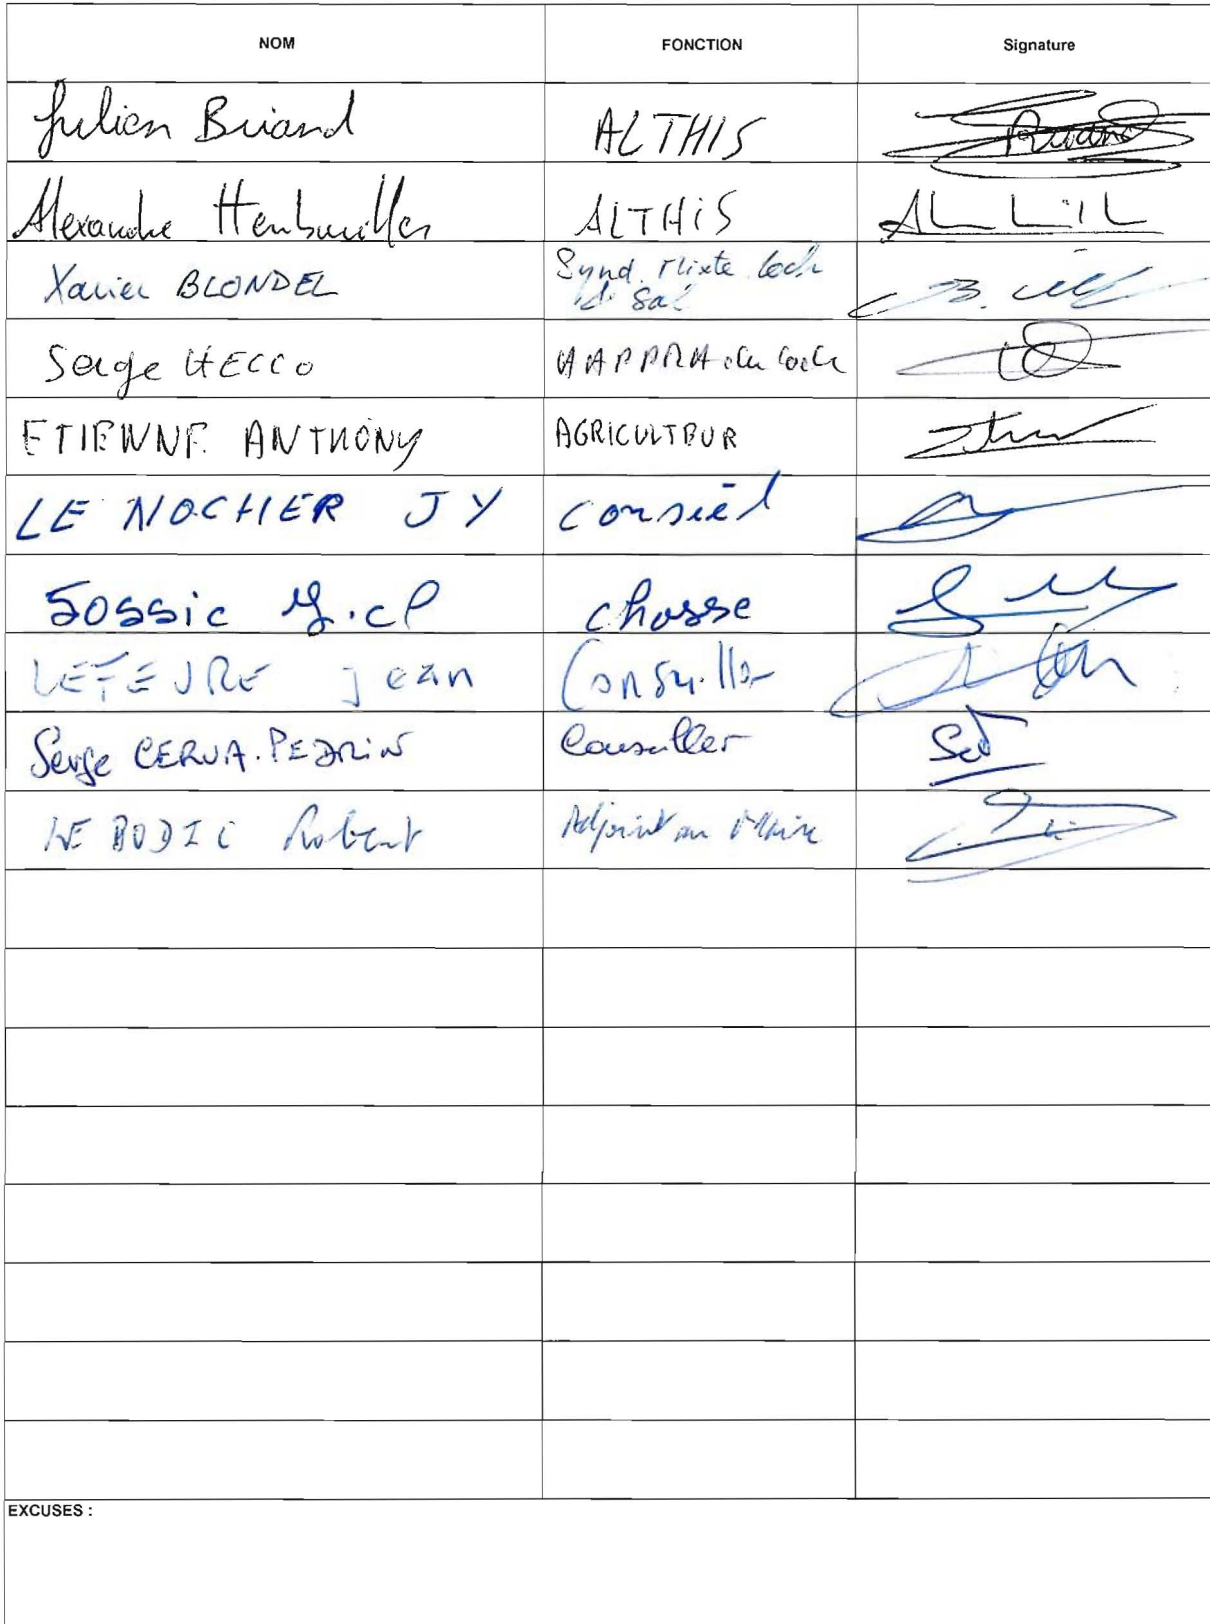 NOM FONCTION Signature
Julien Briand ALTHIS Briand
Alexandre ALTHIS
Xavier BLONDEL Synd. Mixte Loch
du Sal
Serge HECCO AAPPMA du Loch
ETIENNE ANTHONY AGRICULTEUR
LE NOCHER JY conseil
JOSSIC chasse
LEFEUVRE jean Conseiller
Serge CERVA-PEDRIN Conseiller
LE BODIC Robert Adjoint au Maire
EXCUSES :